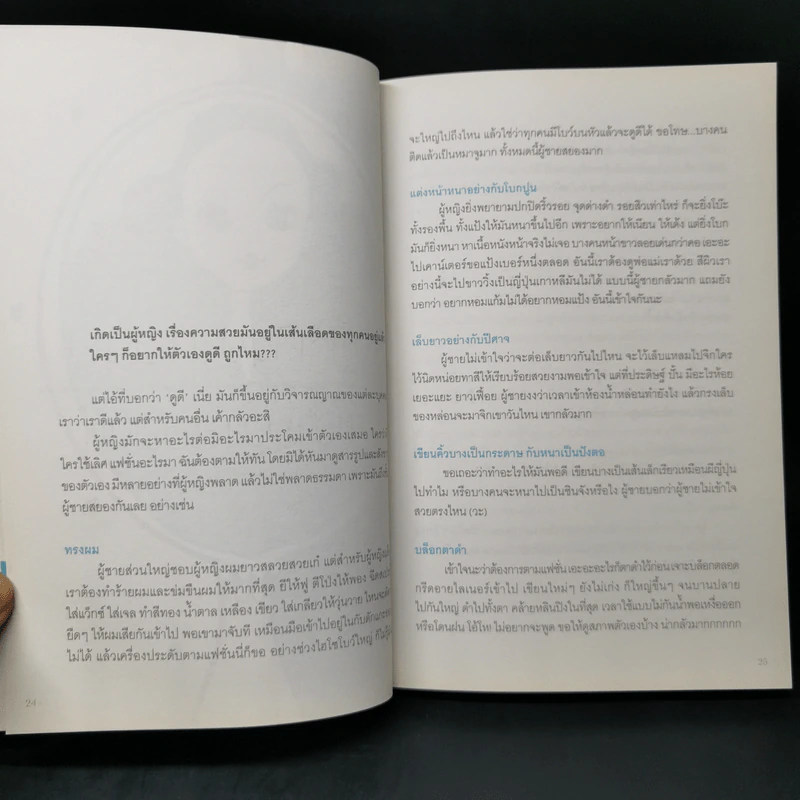 เกิดเป็นผู้หญิง เรื่องความสวยมันอยู่ในเส้นเลือดของทุกคนอยู่แล้ว
ใครๆ ก็อยากให้ตัวเองดูดี ถูกไหม???
แต่ไอ้ที่บอกว่า ‘ดูดี’ เนี่ย มันก็ขึ้นอยู่กับวิจารณญาณของแต่ละบุคค
เราว่าเราดีแล้ว แต่สำหรับคนอื่น เค้ากลัวอะสิ
ผู้หญิงมักจะหาอะไรต่อมิอะไรมาประโคมเข้าตัวเองเสมอ ใครว่า
ใครใช้เลิศ แฟชั่นอะไรมา ฉันต้องตามให้ทัน โดยมิได้หันมาดูสารรูปและสังขา
ของตัวเอง มีหลายอย่างที่ผู้หญิงพลาด แล้วไม่ใช่พลาดธรรมดา เพราะมันถึงขั้น
ผู้ชายสยองกันเลย อย่างเช่น
ทรงผม
ผู้ชายส่วนใหญ่ชอบผู้หญิงผมยาวสลวยสวยเก๋ แต่สำหรับผู้หญิง
เราต้องทำร้ายผมและข่มขืนผมให้มากที่สุด ยีให้ฟู ดีโป่งให้พอง ฉีดสเปร
ใส่แว็กซ์ ใส่เจล ทำสีทอง น้ำตาล เหลือง เขียว ใส่เกลียวให้วุ่นวาย ไหนจะ
ยืดๆ ให้ผมเสียกันเข้าไป พอเขามาจับที เหมือนมือเข้าไปอยู่ในกับดัก
ไม่ได้ แล้วเครื่องประดับตามแฟชั่นนี่ก็ขอ อย่างช่วงไฮโซโบว์ใหญ่ ก็ไม่รู้
24
จะใหญ่ไปถึงไหน แล้วใช่ว่าทุกคนมีโบว์บนหัวแล้วจะดูดีได้ ขอโทษ...บางคน
ติดแล้วเป็นหมาจูมาก ทั้งหมดนี้ผู้ชายสยองมาก
แต่งหน้าหนาอย่างกับโบกปูน
ผู้หญิงยิ่งพยายามปกปิดริ้วรอย จุดด่างดำ รอยสิวเท่าไหร่ ก็จะยิ่งโบ๊ะ
ทั้งรองพื้น ทั้งแป้งให้มันหนาขึ้นไปอีก เพราะอยากให้เนียน ให้เด้ง แต่ยิ่งโบก
มันก็ยิ่งหนา หาเนื้อหนังหน้าจริงไม่เจอ บางคนหน้าขาวลอยเด่นกว่าคอ เอะอะ
ไปเคาน์เตอร์ขอแป้งเบอร์หนึ่งตลอด อันนี้เราต้องดูพ่อแม่เราด้วย สีผิวเรา
อย่างนี้จะไปขาววิ้งเป็นญี่ปุ่นเกาหลีมันไม่ได้ แบบนี้ผู้ชายกลัวมาก แถมยัง
บอกว่า อยากหอมแก้มไม่ได้อยากหอมแป้ง อันนี้เข้าใจกันนะ
เล็บยาวอย่างกับปีศาจ
ผู้ชายไม่เข้าใจว่าจะต่อเล็บยาวกันไปไหน จะไว้เล็บแหลมไปจิกใคร
ไว้นิดหน่อยทาสีให้เรียบร้อยสวยงามพอเข้าใจ แต่ที่ประดิษฐ์ ปั้น มีอะไรห้อย
เยอะแยะ ยาวเฟื้อย ผู้ชายงงว่าเวลาเข้าห้องน้ำหล่อนทำยังไง แล้วกรงเล็บ
ของหล่อนจะมาจิกเขาวันไหน เขากลัวมาก
เขียนคิ้วบางเป็นกระดาษ กับหนาเป็นปังตอ
ขอเถอะจะทำอะไรให้มันพอดี เขียนบางเป็นเส้นเล็กเรียวเหมือนผีญี่ปุ่น
ไปทำไม หรือบางคนจะหนาไปเป็นชินจังหรือไง ผู้ชายบอกว่าผู้ชายไม่เข้าใจ
สวยตรงไหน (วะ)
บล็อกตาดำ
เข้าใจนะว่าต้องการตามแฟชั่น เอะอะอะไรก็ตาดำไว้ก่อน เจาะบล็อกตลอด
กรีดอายไลเนอร์เข้าไป เขียนใหม่ๆ ยังไม่เก่ง ก็ใหญ่ขึ้นๆ จนบานปลาย
ไปกันใหญ่ ดำไปทั้งตา คล้ายหลินปิงในที่สุด เวลาใช้แบบไม่กันน้ำพอเหงื่อออก
หรือโดนฝน โอ้โห ไม่อยากจะพูด ขอให้ดูสภาพตัวเองบ้าง น่ากลัวมากกกกกก
25